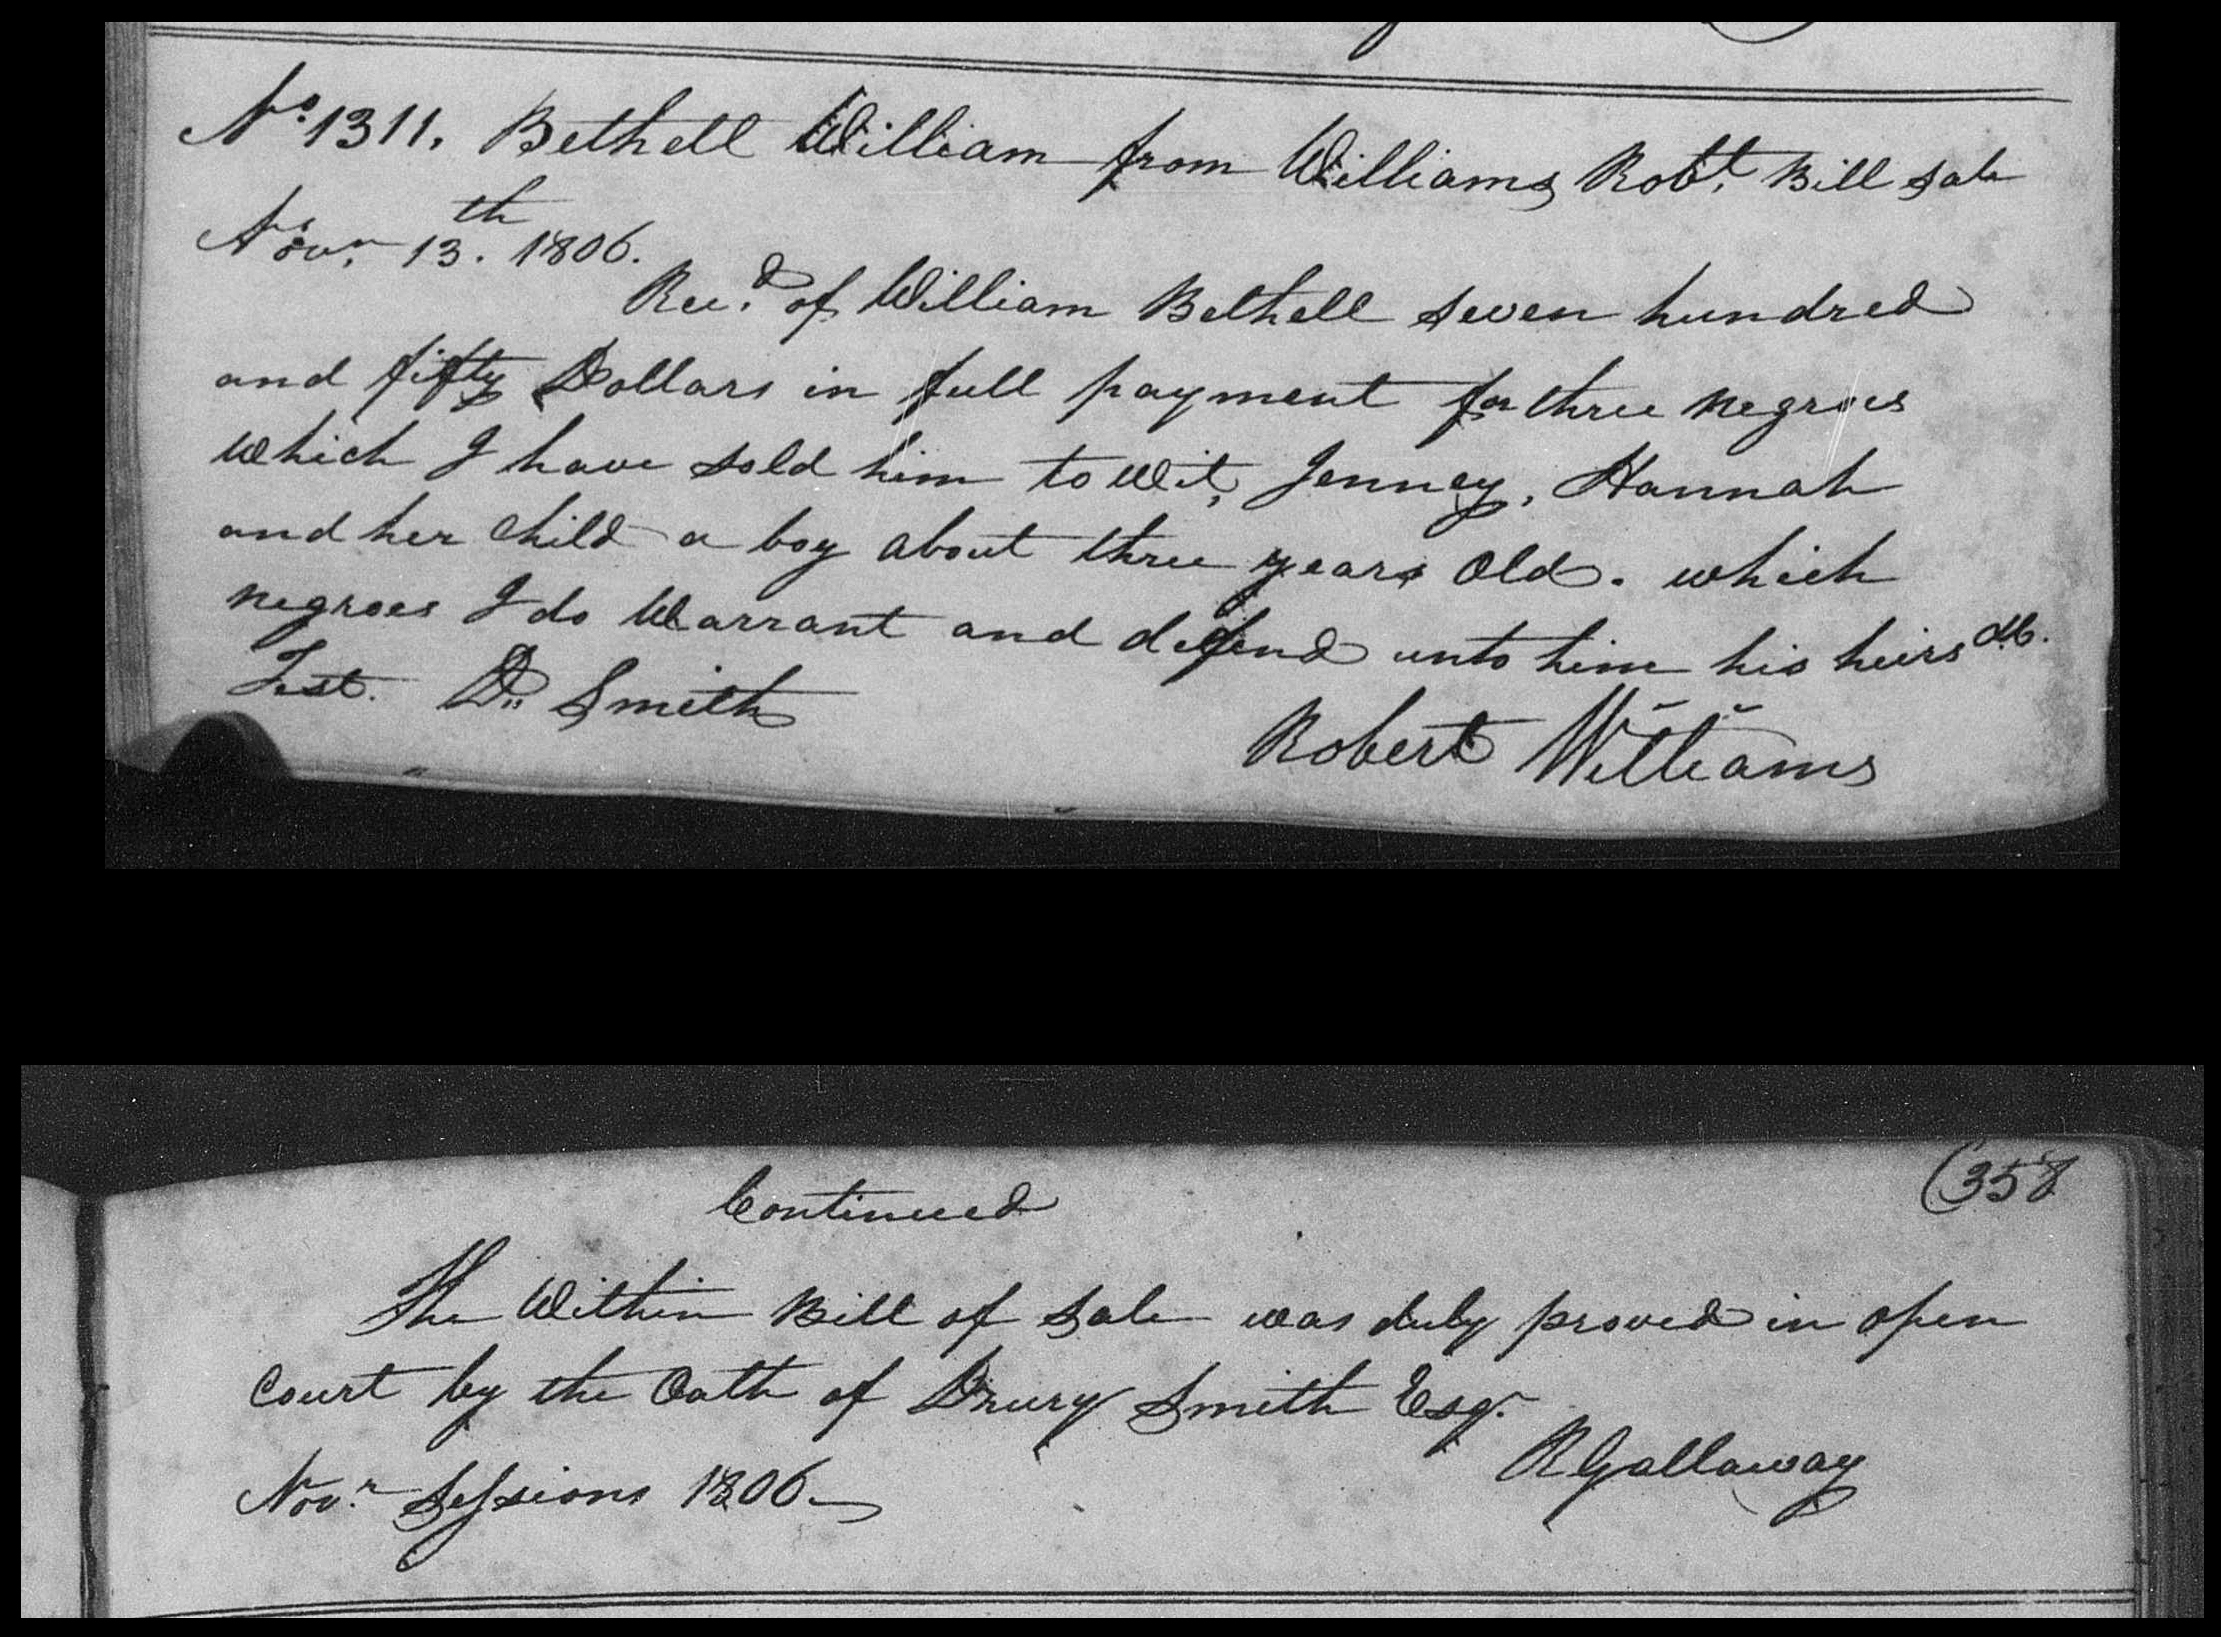 No. 1311. Bethell William from Williams Robt. Bill Sale
Novr. 13th. 1806.
Recd. of William Bethell seven hundred
and fifty Dollars in full payment for three negroes
which I have sold him to wit, Jenney, Hannah
and her Child a boy about three years Old. which
negroes I do Warrant and defend unto him his heirs &c.
Test. Dr. Smith
Robert Williams
Continued
(358
The Within Bill of Sale was duly proved in open
Court by the Oath of Drury Smith Esqr.
RGallaway
Novr. Sessions 1806.